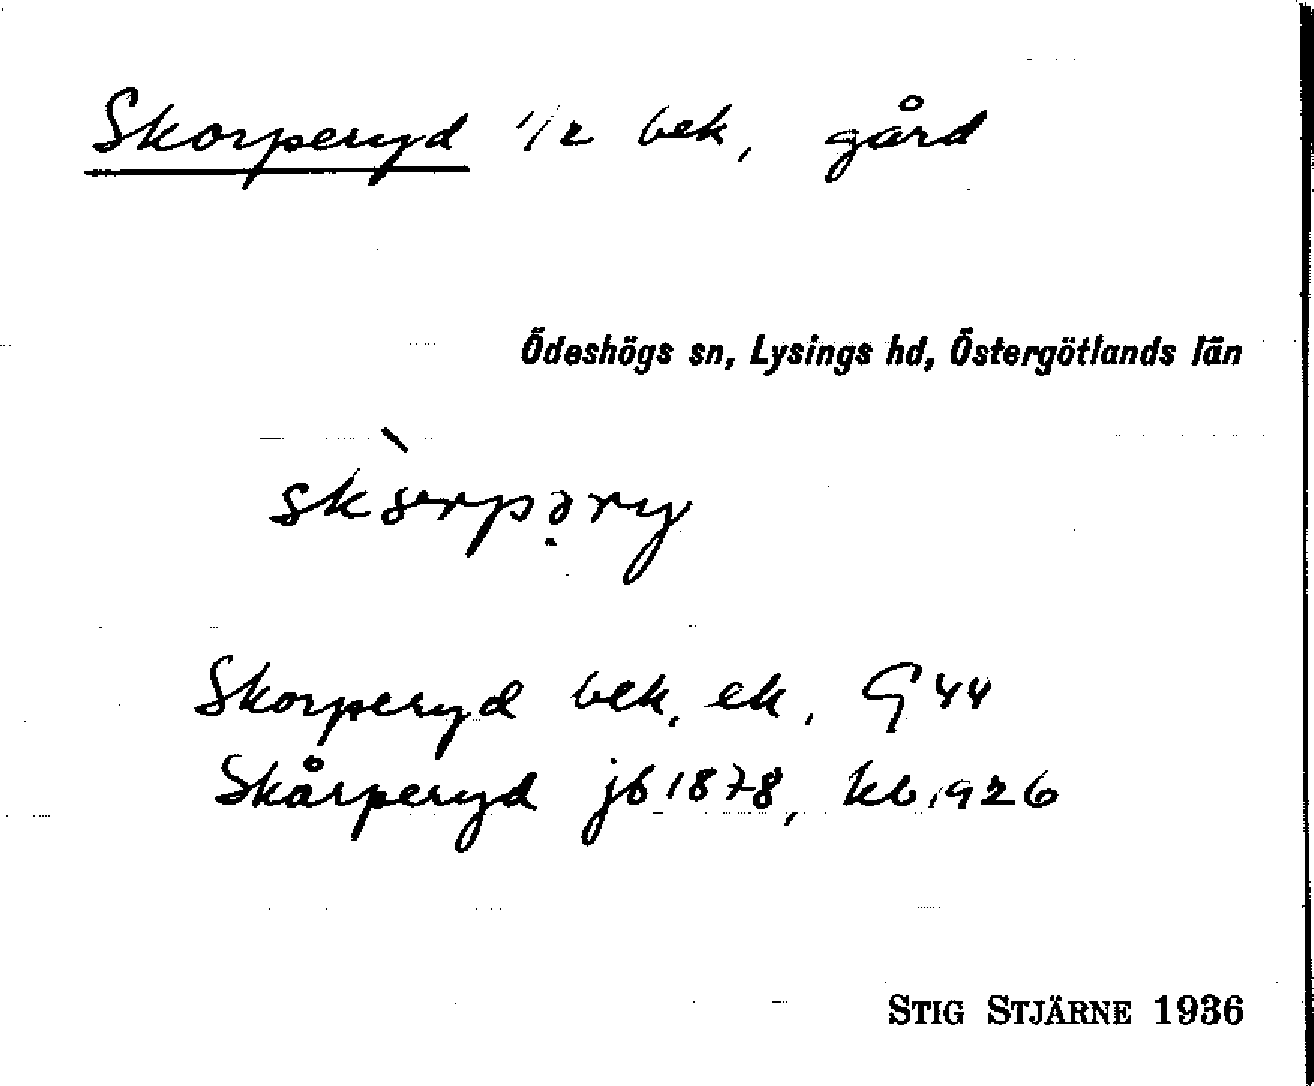 Skorperyd 1/2 bek, gård
Ödeshögs sn, Lysings hd, Östergötlands län
Skorperyd bek. ek. G 44
Skårperyd jb 1878, kb 1926
STIG STJÄRNE 1936